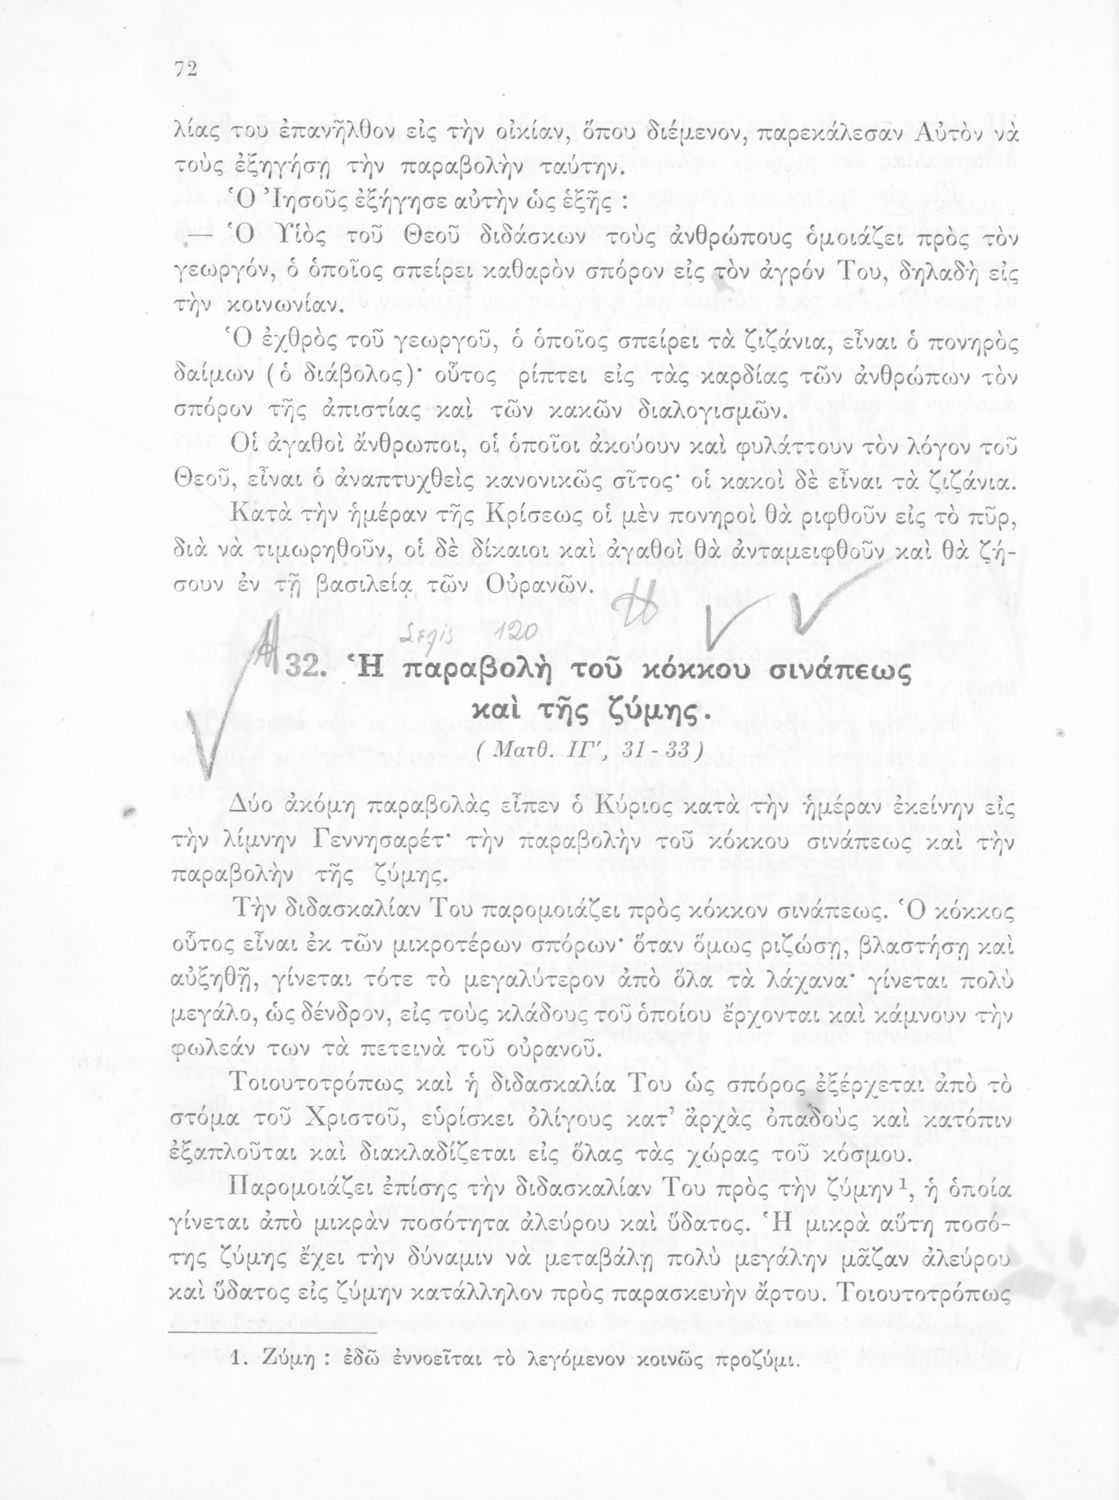 72
λίας του ἐπανῆλθον εἰς τὴν οἰκίαν, ὅπου διέμενον, παρεκάλεσαν Αὐτὸν νὰ
τοὺς ἐξηγήσῃ τὴν παραβολὴν ταύτην.
Ὁ Ἰησοῦς ἐξήγησε αὐτὴν ὡς ἑξῆς :
— Ὁ Υἱὸς τοῦ Θεοῦ διδάσκων τοὺς ἀνθρώπους ὁμοιάζει πρὸς τὸν
γεωργόν, ὁ ὁποῖος σπείρει καθαρὸν σπόρον εἰς τὸν ἀγρόν Του, δηλαδὴ εἰς
τὴν κοινωνίαν.
Ὁ ἐχθρὸς τοῦ γεωργοῦ, ὁ ὁποῖος σπείρει τὰ ζιζάνια, εἶναι ὁ πονηρὸς
δαίμων (ὁ διάβολος)· οὗτος ρίπτει εἰς τὰς καρδίας τῶν ἀνθρώπων τὸν
σπόρον τῆς ἀπιστίας καὶ τῶν κακῶν διαλογισμῶν.
Οἱ ἀγαθοὶ ἄνθρωποι, οἱ ὁποῖοι ἀκούουν καὶ φυλάττουν τὸν λόγον τοῦ
Θεοῦ, εἶναι ὁ ἀναπτυχθεὶς κανονικῶς σῖτος· οἱ κακοὶ δὲ εἶναι τὰ ζιζάνια.
Κατὰ τὴν ἡμέραν τῆς Κρίσεως οἱ μὲν πονηροὶ θὰ ριφθοῦν εἰς τὸ πῦρ,
διὰ νὰ τιμωρηθοῦν, οἱ δὲ δίκαιοι καὶ ἀγαθοὶ θὰ ἀνταμειφθοῦν καὶ θὰ ζή-
σουν ἐν τῇ βασιλείᾳ τῶν Οὐρανῶν.
120
32. Ἡ παραβολὴ τοῦ κόκκου σινάπεως
καὶ τῆς ζύμης.
(Ματθ. ΙΓ', 31 - 33)
Δύο ἀκόμη παραβολὰς εἶπεν ὁ Κύριος κατὰ τὴν ἡμέραν ἐκείνην εἰς
τὴν λίμνην Γεννησαρέτ· τὴν παραβολὴν τοῦ κόκκου σινάπεως καὶ τὴν
παραβολὴν τῆς ζύμης.
Τὴν διδασκαλίαν Του παρομοιάζει πρὸς κόκκον σινάπεως. Ὁ κόκκος
οὗτος εἶναι ἐκ τῶν μικροτέρων σπόρων· ὅταν ὅμως ριζώσῃ, βλαστήσῃ καὶ
αὐξηθῇ, γίνεται τότε τὸ μεγαλύτερον ἀπὸ ὅλα τὰ λάχανα· γίνεται πολὺ
μεγάλο, ὡς δένδρον, εἰς τοὺς κλάδους τοῦ ὁποίου ἔρχονται καὶ κάμνουν τὴν
φωλεάν των τὰ πετεινὰ τοῦ οὐρανοῦ.
Τοιουτοτρόπως καὶ ἡ διδασκαλία Του ὡς σπόρος ἐξέρχεται ἀπὸ τὸ
στόμα τοῦ Χριστοῦ, εὑρίσκει ὀλίγους κατ' ἀρχὰς ὀπαδοὺς καὶ κατόπιν
ἐξαπλοῦται καὶ διακλαδίζεται εἰς ὅλας τὰς χώρας τοῦ κόσμου.
Παρομοιάζει ἐπίσης τὴν διδασκαλίαν Του πρὸς τὴν ζύμην¹, ἡ ὁποία
γίνεται ἀπὸ μικρὰν ποσότητα ἀλεύρου καὶ ὕδατος. Ἡ μικρὰ αὕτη ποσό-
της ζύμης ἔχει τὴν δύναμιν νὰ μεταβάλῃ πολὺ μεγάλην μᾶζαν ἀλεύρου
καὶ ὕδατος εἰς ζύμην κατάλληλον πρὸς παρασκευὴν ἄρτου. Τοιουτοτρόπως
1. Ζύμη : ἐδῶ ἐννοεῖται τὸ λεγόμενον κοινῶς προζύμι.